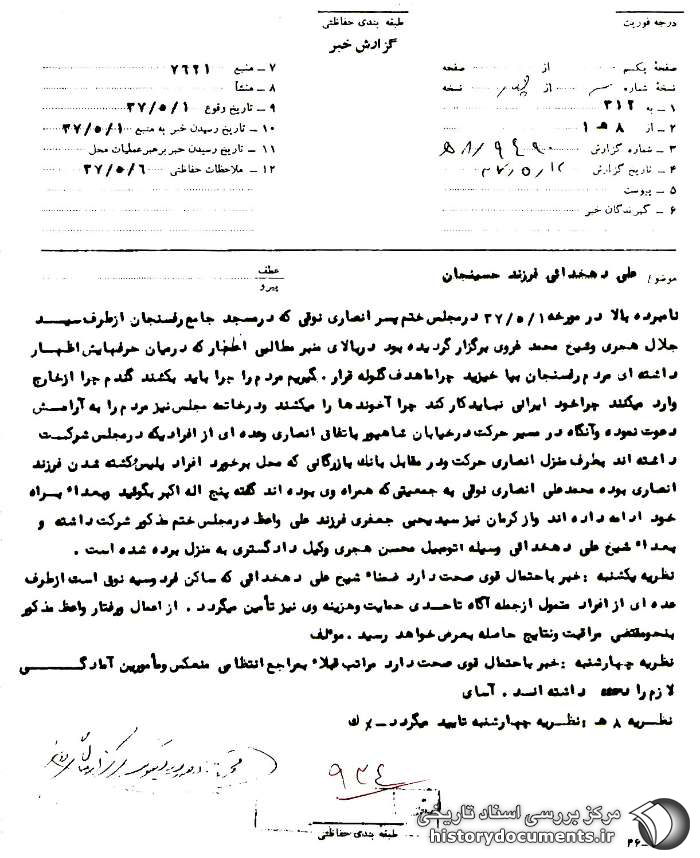 درجه فوریت
طبقه بندی حفاظتی
گزارش خبر
صفحهٔ یکم از صفحه
نسخهٔ شماره سه از چهار نسخه
۱ - به ۳۱۲
۲ - از ۸ هـ ۱
۳ - شماره گزارش
۴ - تاریخ گزارش
۵ - پیوست
۶ - گیرندگان خبر
۷ - منبع ۷۶۲۱
۸ - منشأ
۹ - تاریخ وقوع ۳۷/۵/۱
۱۰ - تاریخ رسیدن خبر به منبع ۳۷/۵/۱
۱۱ - تاریخ رسیدن خبر برهبر عملیات محل
۱۲ - ملاحظات حفاظتی ۳۷/۵/۶
موضوع: علی دهخدائی فرزند حسینجان
عطف
پیرو
نامبرده بالا در مورخه ۳۷/۵/۱ در مجلس ختم پسر انصاری نوقی که در مسجد جامع رفسنجان از طرف سید
جلال هجری و شیخ محمد غروی برگزار گردیده بود در بالای منبر مطالبی اظهار که در میان حرفهایش اظهار
داشته ای مردم رفسنجان بپا خیزید چرا ما هدف گلوله قرار . گیریم مردم را چرا باید بکشند گندم چرا از خارج
وارد میکنند چرا خود ایرانی نباید کار کند چرا آخوندها را میکشند و در خاتمه مجلس نیز مردم را به آرامش
دعوت نموده و آنگاه در مسیر حرکت در خیابان شاهپور باتفاق انصاری وعده ای از افرادیکه در مجلس شرکت
داشته اند بطرف منزل انصاری حرکت و در مقابل بانک بازرگانی که محل برخورد افراد پلیس و کشته شدن فرزند
انصاری بوده محمد علی انصاری نوقی به جمعیتی که همراه وی بوده اند گفته پنج اله اکبر بگوئید و بعداء براه
خود ادامه داده اند و از کرمان نیز سید یحیی جعفری فرزند علی واعظ در مجلس ختم مذکور شرکت داشته و
بعداء شیخ علی دهخدائی وسیله اتومبیل محسن هجری وکیل دادگستری به منزل برده شده است .
نظریه یکشنبه : خبر با احتمال قوی صحت دارد ضمناء شیخ علی دهخدائی که ساکن فردوسیه نوق است از طرف
عده ای از افراد متمول از جمله آگاه تا حدی حمایت و هزینه وی نیز تأمین میگردد . از اعمال و رفتار واعظ مذکور
بنحو مقتضی مراقبت و نتایج حاصله بعرض خواهد رسید . موٴلف
نظریه چهارشنبه : خبر با احتمال قوی صحت دارد مراتب قبلاء بمراجع انتظامی منعکس و مأمورین آمادگی
لازم را داشته اند . آسای
نظریه ۸ هـ : نظریه چهارشنبه تایید میگردد
۹۳۴
طبقه بندی حفاظتی
مرکز بررسی اسناد تاریخی
historydocuments.ir